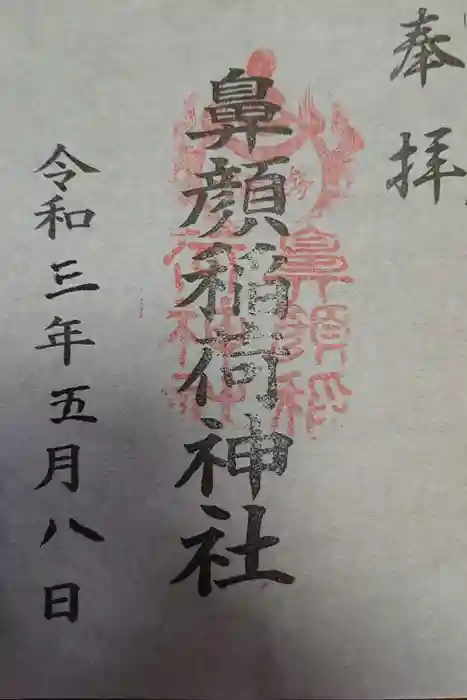 奉拝
鼻顔稲荷神社
鼻顔稲
荷神社
令和三年五月八日